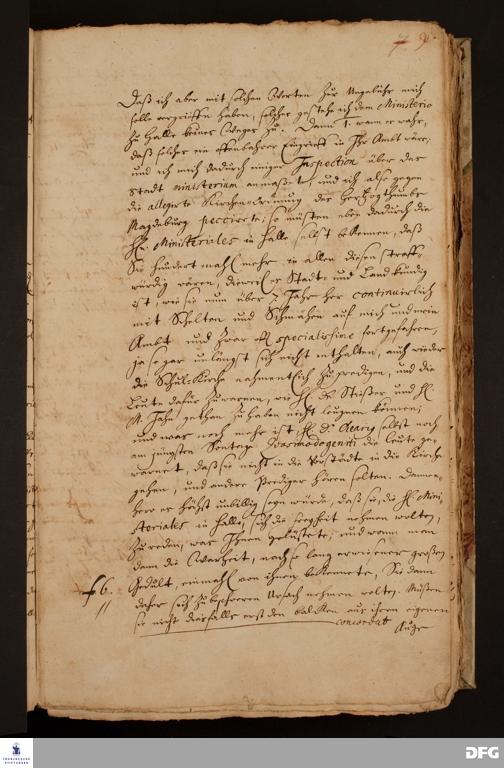 79.
Daß ich aber mit solchen Worten zur Ungebühr mich
solle vergriffen haben, solches gestehe ich dem Ministerio
zu Halle keines Weges zu. Dann 1. wann es wahr,
daß solches ein offenbahrer Eingriff in Ihr Ambt wäre,
und ich mich dadurch einiger Inspection über das
Stadt Ministerium anmaßet, und ich also gegen
die allegirte Kirchen-Ordnung des Herzogthumbs
Magdeburg peccirete; so müsten eben dadurch die
HEn. Ministeriales in Halle selbst bekennen, daß
Sie hundert mahl mehr in allen diesen straff-
würdig wären, dieweil es Stadt- und Land kündig
ist, wie sie nun über 7 Jahr her continuirlich
mit Schelten und Schmähen auf mich und mein
Ambt und zwar specialissime fortgefahren,
ja sogar unlängst sich nicht enthalten, auch wieder
die Schul-Kirche nahmentlich zu predigen, und die
Leute dafür zu warnen, wie H. Dr. Stisser, und H.
M. Jahn gethan zu haben nicht leügnen können;
und was noch mehr ist, H. D. Olearius selbst noch
am jüngsten Sontage Quasimodogeniti die Leute ge-
warnet, daß sie nicht in die Vorstädte in die Kirche
gehen, und andere Prediger hören solten. Dannen-
hero es höchst unbillig seyn würde, daß sie, die H. Mini-
steriales in Halle, sich die Freyheit nehmen wolten,
zu reden, was Ihnen gelüstete; und wann man
dann die Warheit, nach so lang erwiesener großen
Gedült, einmahl von ihnen bekennete, Sie dann
daher sich zu beschweren Ursach nehmen wolten. Müsten
sie nicht diesfalls erst den balken aus ihren eigenen
concordat
Auge
f 6.
FRANCKESCHE
STIFTUNGEN
DFG